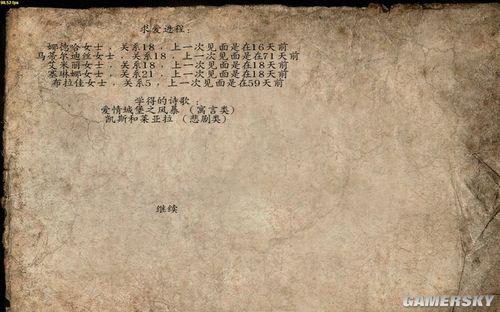 98.52 fps
求爱进程：
娜德哈女士，关系18，上一次见面是在16天前
马蒂尔迪丝女士，关系18，上一次见面是在71天前
艾米丽女士，关系18，上一次见面是在18天前
塞琳娜女士，关系21，上一次见面是在18天前
布拉佳女士，关系5，上一次见面是在59天前
学得的诗歌：
爱情城堡之风暴（寓言类）
凯斯和莱亚拉（悲剧类）
继续
GAMERSKY